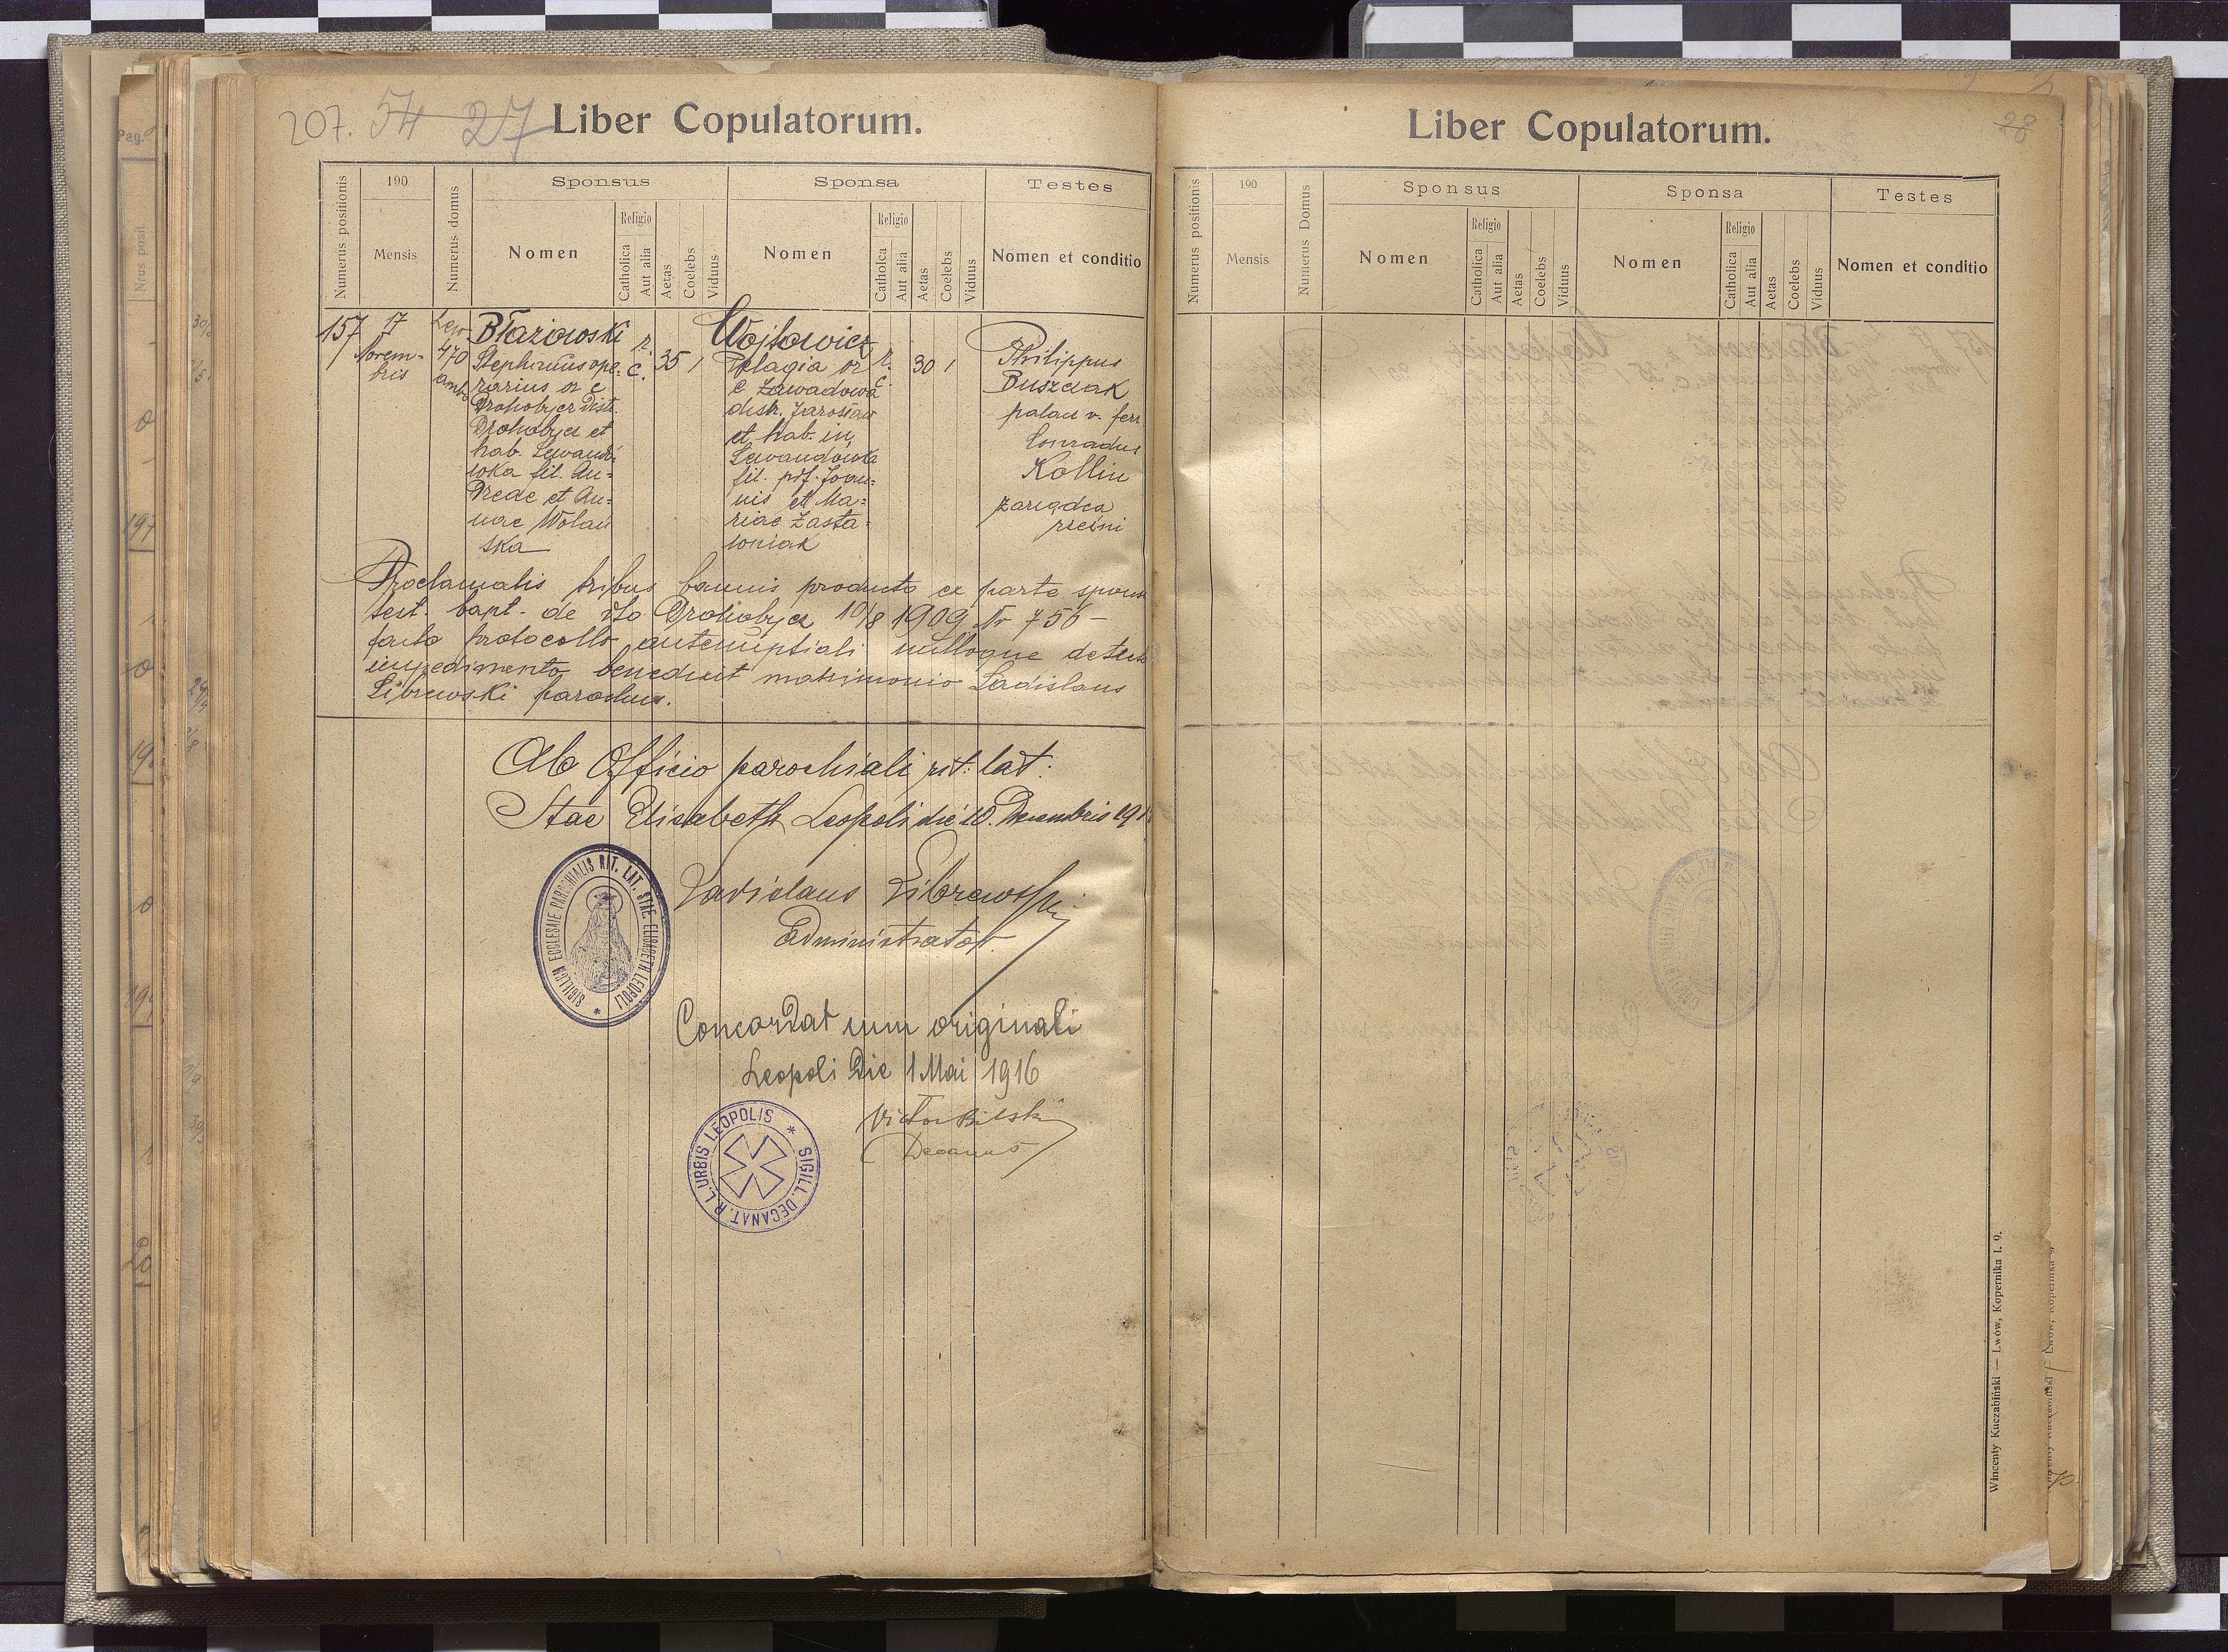 207. 54 27
Liber Copulatorum.
Numerus positionis
190
Mensis
Numerus domus
Sponsus
Nomen
Religio
Catholica
Aut alia
Aetas
Coelebs
Viduus
Sponsa
Nomen
Religio
Catholca
Aut alia
Aetas
Coelebs
Viduus
Testes
Nomen et conditio
157
17
Novem-
bris
Lew
470
ambo
Błazowski
Stephanus ope-
rarius or e
Drohobycz distr.
Drohobycz et
hab. Lewandó-
wka fil. An=
dreae et An=
nae Wolań
ska
r.
c.
35 1
Wojtowicz
Pelagia or
e Zawadowa
distr. Jarosław
et hab. in
Lewandówka
fil. pdf. Joan=
nis et Ma=
riae Zasta-
woniak
r.
c.
30 1
Philippus
Buszczak
palacz v. ferr
Conradus
Kollin
zarządca
rzeźni
Proclamatis tribus bannis producto ex parte sponsi
test. bapt. de dto Drohobycz 10/8 1909 Nr 756 -
facto protocollo antenuptiali nulloque detecto
impedimento benedixit matrimonio Ladislaus
Librewski parochus.
Ab Officio parochiali rit: lat:
Stae Elisabeth Leopoli die 10. Decembris 191
Ladislaus Librewski
Administrator.
SIGILLUM ECCLESIAE PAROCHIALIS RIT. LAT. STAE. ELISABETH LEOPOLI *
Concordat cum originali
Leopoli Die 1 Mai 1916
Victor Bilski
Decanus
SIGILL. DECANAT. R. L. URBIS LEOPOLIS *
Liber Copulatorum.
28
Numerus positionis
190
Mensis
Numerus Domus
Sponsus
Nomen
Religio
Catholica
Aut alia
Aetas
Coelebs
Viduus
Sponsa
Nomen
Religio
Catholica
Aut alia
Aetas
Coelebs
Viduus
Testes
Nomen et conditio
Wincenty Kuczabiński — Lwów, Kopernika l. 9.
Pag.
Nrus posit.